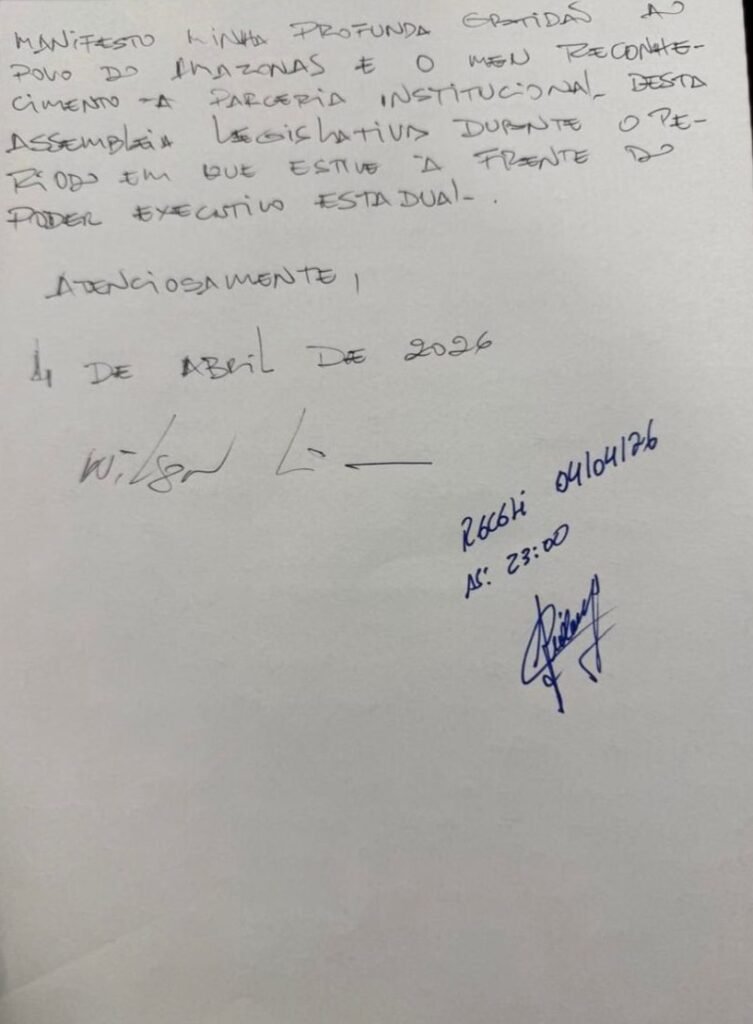 MANIFESTO MINHA PROFUNDA GRATIDÃO AO
POVO DO AMAZONAS E O MEU RECONHE-
CIMENTO À PARCERIA INSTITUCIONAL DESTA
ASSEMBLEIA LEGISLATIVA DURANTE O PE-
RÍODO EM QUE ESTIVE À FRENTE DO
PODER EXECUTIVO ESTADUAL.
ATENCIOSAMENTE,
4 DE ABRIL DE 2026
Wilson Li
RECEBI 04/04/26
AS: 23:00